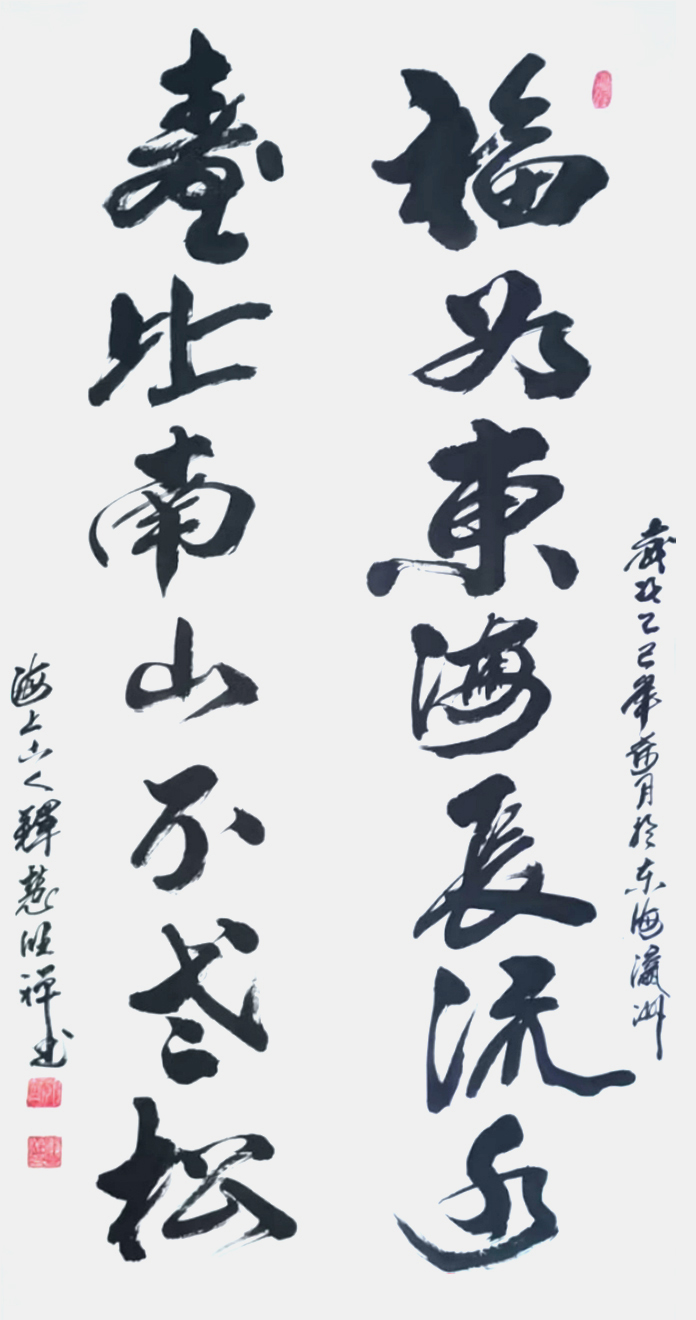 歲次乙巳年月於东海瀛洲
福如東海長流水
壽比南山不老松
海上山人釋慧禪书